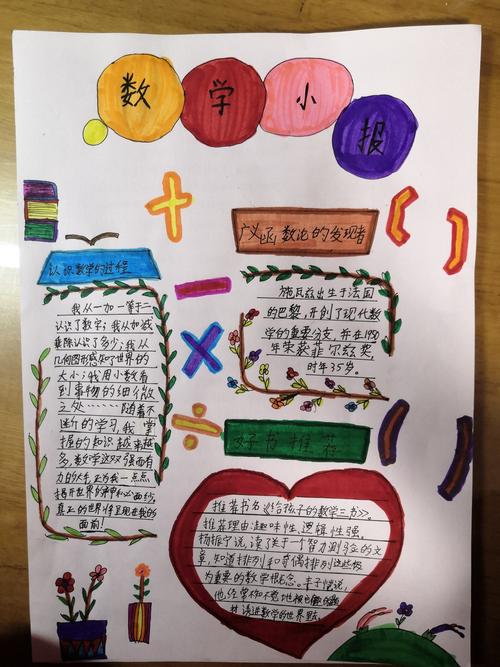 数学小报
认识数学的过程
我从一加一等于二
认识了数学;我从加减
乘除认识了多少;我从
几何图形感知了世界的
大小;我用小数看
到事物的细微
之处………随着不
断的学习,我掌
握的知识越来越
多,数学这双强而有
力的大手正为我一点点
揭开世界的神秘面纱,
真正的世界将呈现在我的
面前!
广义函数论的发现者
施瓦兹出生于法国
的巴黎,开创了现代数
学的重要分支,并在1950
年荣获菲尔兹奖,
时年35岁。
好书推荐
推荐书名《给孩子的数学三书》。
推荐理由:趣味性、逻辑性强。
杨振宁说,读了关于一个智力测验的文
章,知道排列和奇偶排列这些极
为重要的数学概念。丰子恺说,
他经常不知不觉地被
材诱进数学的世界里。